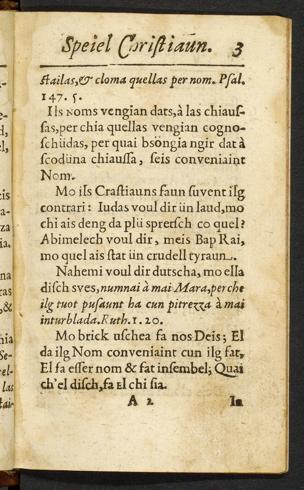 Speiel Chriſtiaun. 3
ſtailas, & cloma quellas per nom. Pſal.
147. 5.
Ils Noms vengian dats, à las chiauſ-
ſas, per chia quellas vengian cogno-
ſchüdas, per quai bsöngia ngir dat à
ſcodüna chiauſſa, ſeis conveniaint
Nom.
Mo ils Craſtiauns faun ſuvent ilg
contrari: Iudas voul dir ün laud, mo
chi ais deng da plü spretſch co quel?
Abimelech voul dir, meis Bap Rai,
mo quel ais ſtat ün crudell tyraun.
Nahemi voul dir dutscha, mo ella
diſch sves, numnai à mai Mara, perche
ilg tuot puſaunt ha cun pitrezza à mai
inturblada. Ruth. 1. 20.
Mo brick uſchea fa nos Deis; El
da ilg Nom conveniaint cun ilg fat,
El fa eſſer nom & fat inſembel; Quai
ch'el diſch, fa El chi ſia.
A 2 In